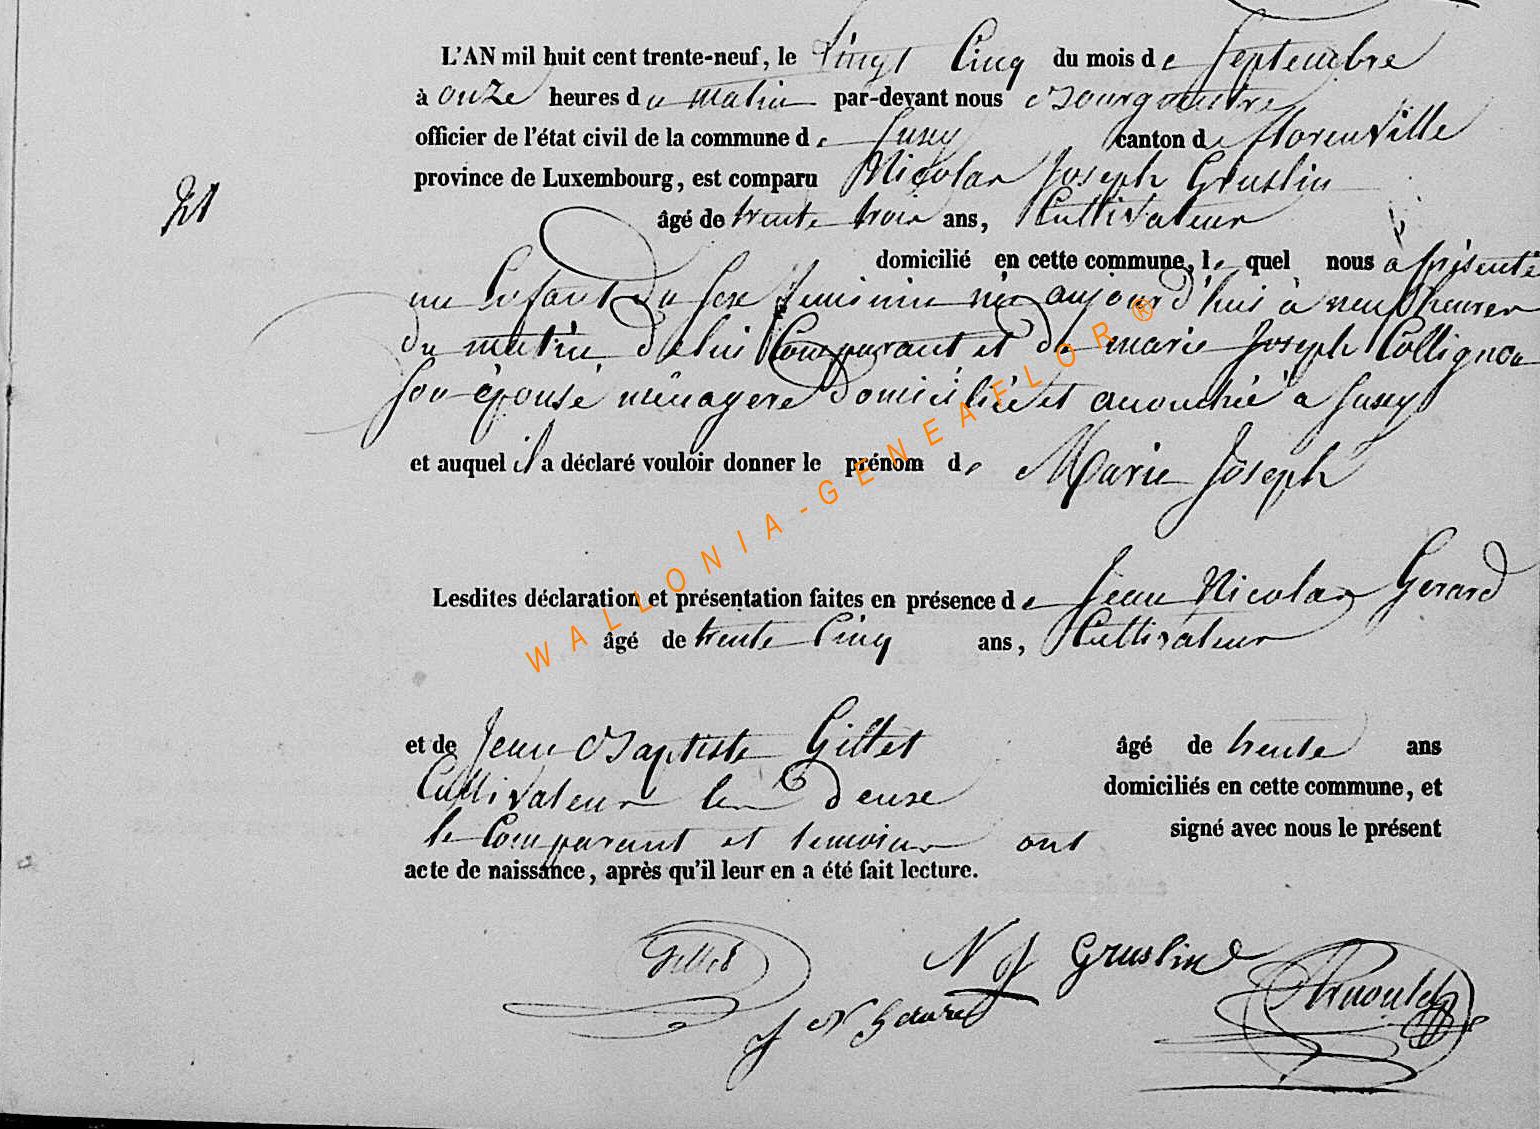 L'AN mil huit cent trente-neuf, le Vingt Cinq du mois de Septembre
à onze heures du matin par-devant nous Bourgmestre
officier de l'état civil de la commune de Jusey canton de florenville
province de Luxembourg, est comparu Nicolas Joseph Gruslin
21
âgé de trente trois ans, Cultivateur
domicilié en cette commune, le quel nous à présenté
un Enfant du sexe feminin née aujourd'hui à neuf heures
du matin de lui Comparant et de marie Joseph Collignon
son épouse ménagere domiciliée et accouchée a Jusey
et auquel il a déclaré vouloir donner le prénom de Marie Joseph
Lesdites déclaration et présentation faites en présence de Jean Nicolas Gerard
âgé de trente Cinq ans, Cultivateur
et de Jean Baptiste Gillet âgé de trente ans
Cultivateur les deux domiciliés en cette commune, et
le Comparant et temoins ont signé avec nous le présent
acte de naissance, après qu'il leur en a été fait lecture.
Gillet N J Gruslin
J N Gerard
WALLONIA-GENEAFLOR®